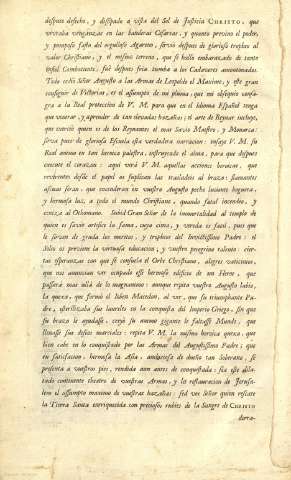 despues deshecho, y dissipado a vista del Sol de Justicia CHRISTO, que
vibrava venganzas en las banderas Cesareas, y quanto previno el poder,
y pomposo fasto del orgulloso Agareno, sirviò despues de glorioso tropheo al
valor Christiano, y el mismo terreno, que se hallò embarazado de tanto
Infiel Combatiente, fuè despues fria tumba a los Cadaveres amontonados.
Todo cediò Señor Augusto a las Armas de Leopoldo el Maximo, y este gran
conseguir de Vitorias, es el assumpto de mi pluma, que mi obsequio consa-
gra a la Real proteccion de V. M. para que en el Idioma Español tenga
que venerar, y aprender de tan elevadas hazañas; el arte de Reynar incluye,
que exerciò quien es de los Reynantes el mas Sabio Maestro, y Monarca:
sirva pues de gloriosa Escuela esta verdadera narracion: ensaye V. M. su
Real animo en tan heroica palestra, instruyendo el alma, para que despues
execute el corazon: aqui verà V. M. aquellas acciones heroicas, que
revivientes desde el papel os suplican las trasladeis al brazo: flamantes
ascuas seran, que enciendan en vuestro Augusto pecho luciente hoguera,
y hermosa luz, a todo el mundo Christiano, quando fatal incendio, y
ceniza al Othomano. Subid Gran Señor de la inmortalidad al templo de
quien es savio artifice la fama, cuya cima, y vereda es facil, pues que
le sirven de grada los meritos, y tropheos del Invictissimo Padre: el
Solio os previene la virtuosa educacion, y vuestro peregrino talento: cier-
tas esperanzas con que se consuela el Orbe Christiano, alegres vaticinios,
que nos anuncian ver ocupado esse hermoso edificio de un Heroe, que
passarà mas allà de lo magnanimo: aunque repita vuestro Augusto labio,
la quexa, que formò el Ioben Macedon, al ver, que su triumphante Pa-
dre, esterilizaba sus laureles en la conquista del Imperio Griego, sin que
su brazo le ayudasse, creyò su animo gigante le faltasse Mundo, que
llenasse sus deseos marciales: repita V. M. la misma heroica quexa, que
bien cabe en lo conquistado por las Armas del Augustissimo Padre; que
en satisfacion, hermosa la Asia, ambiciosa de dueño tan Soberano, se
presenta a vuestros pies, rendida aun antes de conquistada: sea esse dila-
tado continente theatro de vuestras Armas, y la restauracion de Jerusa-
lem el assumpto maximo de vuestras hazañas: sed vos Señor quien rescate
la Tierra Santa enriquecida con preciosos rubies de la Sangre de CHRISTO
derra-